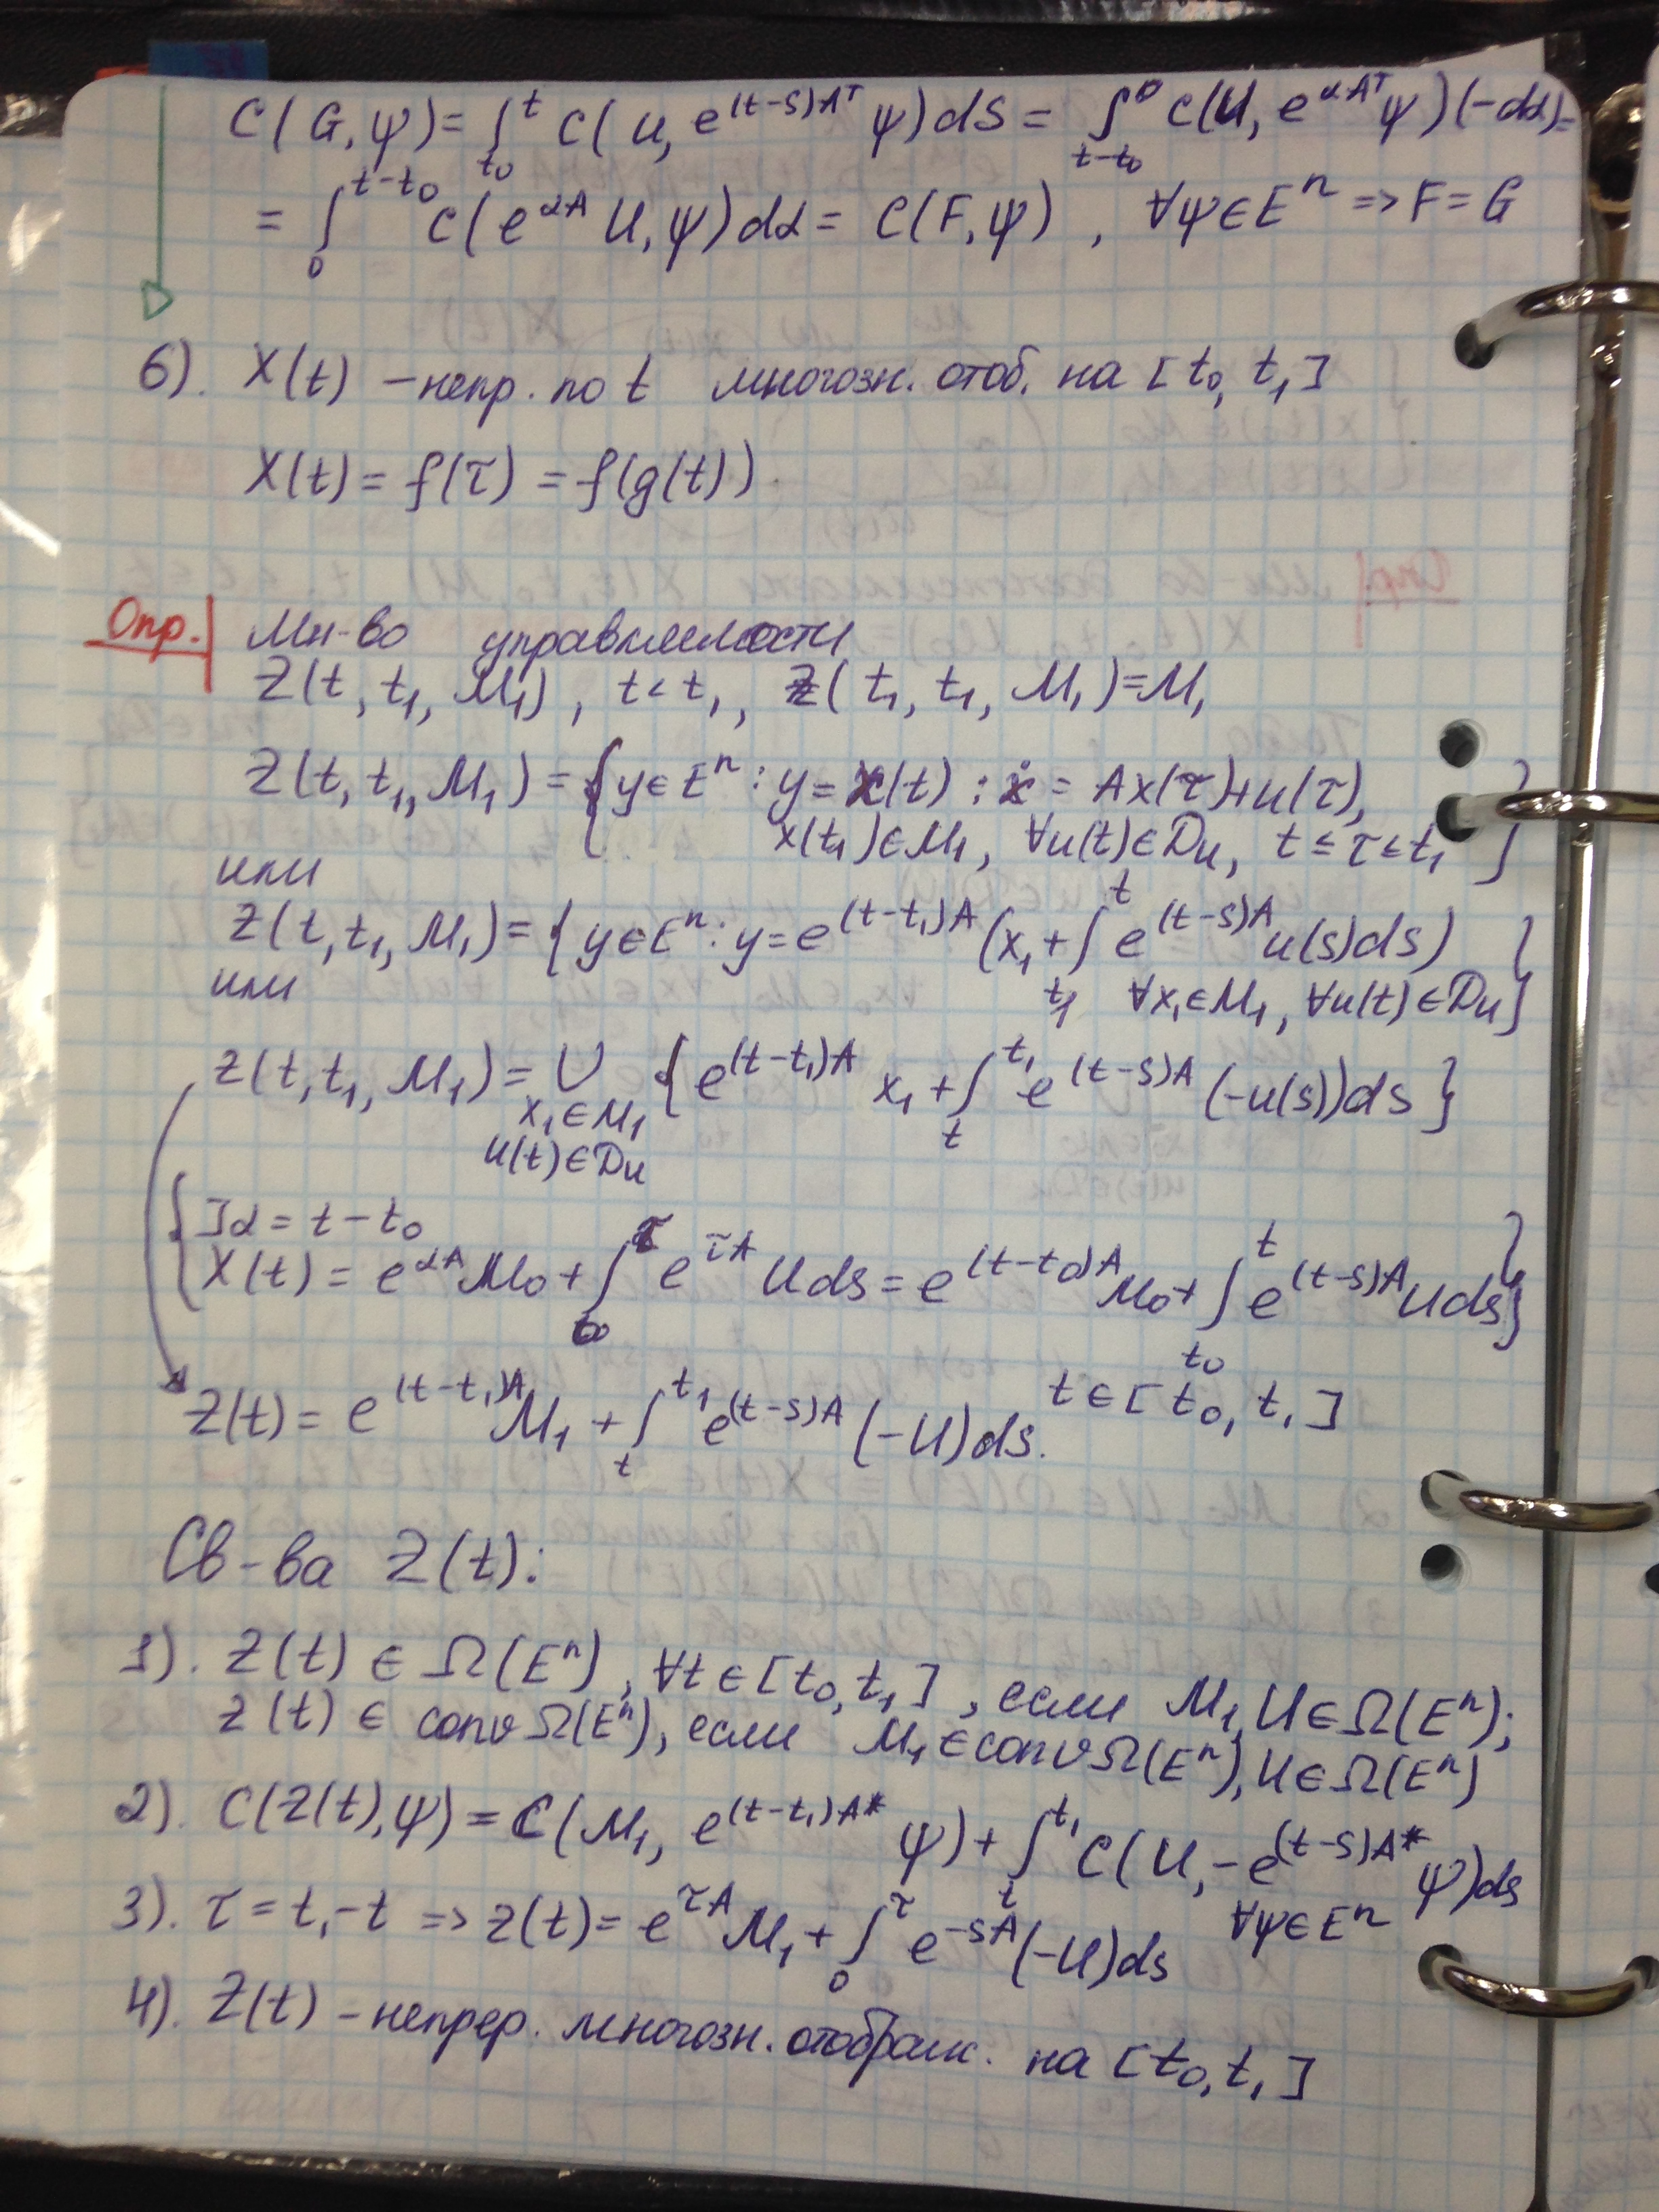 C(G,ψ)= ∫_{t₀}^{t} C(U, e^{(t-s)A^T} ψ)ds = ∫_{t-t₀}^{0} C(U, e^{αA^T}ψ)(-dα)=
= ∫_{0}^{t-t₀} C(e^{αA} U,ψ)dα = C(F,ψ) , ∀ψ∈Eⁿ => F=G
6). X(t) – непр. по t многозн. отоб. на [t₀, t₁]
X(t) = f(τ) = f(g(t)).
Опр. Мн-во управляемости
Z(t, t₁, M₁), t<t₁, Z(t₁, t₁, M₁)=M₁
Z(t, t₁, M₁) = {y∈Eⁿ : y=x(t) : ẋ = Ax(τ)+u(τ),
x(t₁)∈M₁, ∀u(t)∈D_U, t≤τ≤t₁ }
или
Z(t,t₁,M₁)= {y∈Eⁿ: y=e^{(t-t₁)A} (x₁+∫_{t₁}^{t} e^{(t-s)A}u(s)ds)
∀x₁∈M₁, ∀u(t)∈D_U}
или
Z(t,t₁,M₁)= ∪ {e^{(t-t₁)A} x₁+∫_{t}^{t₁} e^{(t-s)A} (-u(s))ds}
x₁∈M₁
u(t)∈D_U
{ ]α = t-t₀
X(t) = e^{αA}M₀+∫_{t₀}^{τ} e^{τA} U ds = e^{(t-t₀)A}M₀+∫_{t₀}^{t} e^{(t-s)A}U ds}
Z(t)= e^{(t-t₁)A}M₁ +∫_{t}^{t₁} e^{(t-s)A} (-U)ds. t∈[t₀, t₁]
Св-ва Z(t):
1). Z(t) ∈ Ω(Eⁿ), ∀t∈[t₀,t₁], если M₁,U∈Ω(Eⁿ);
Z(t) ∈ conv Ω(Eⁿ), если M₁∈conv Ω(Eⁿ), U∈Ω(Eⁿ)
2). C(Z(t),ψ)=C(M₁, e^{(t-t₁)A*} ψ)+ ∫_{t}^{t₁} C(U,-e^{(t-s)A*} ψ)ds
∀ψ∈Eⁿ
3). τ = t₁-t => Z(t)= e^{τA}M₁+∫_{0}^{τ} e^{-sA}(-U)ds
4). Z(t) – непрер. многозн. отображ. на [t₀,t₁]